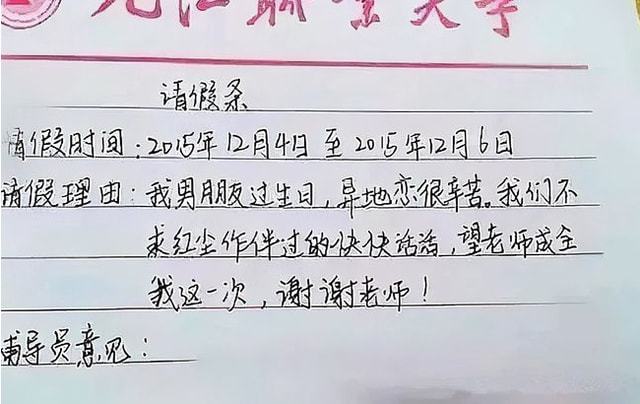 九江职业大学
请假条
请假时间：2015年12月4日至2015年12月6日
请假理由：我男朋友过生日，异地恋很辛苦。我们不
求红尘作伴过的快快活活，望老师成全
我这一次，谢谢老师！
辅导员意见：